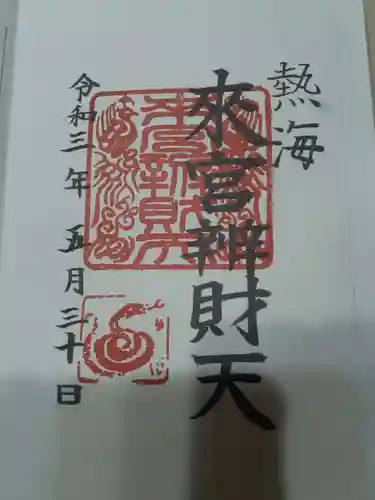 熱海
來宮辨財天
令和三年 五月三十日